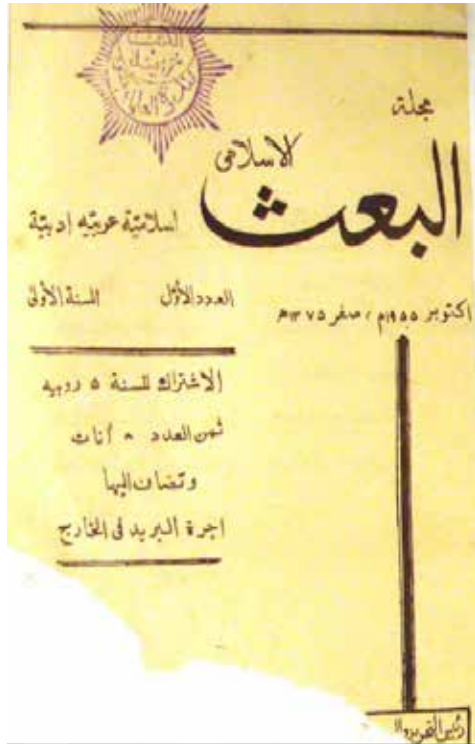 مجلة
البعث الاسلامى
اسلامية عربيه ادبية
العدد الأول السنة الأولى
اكتوبر ١٩٥٥م، صفر ١٣٧٥هـ
الاشتراك للسنة ٥ روبيه
ثمن العدد ٨ أنات
وتضاف اليها
اجرة البريد فى الخارج
رئيس التحرير